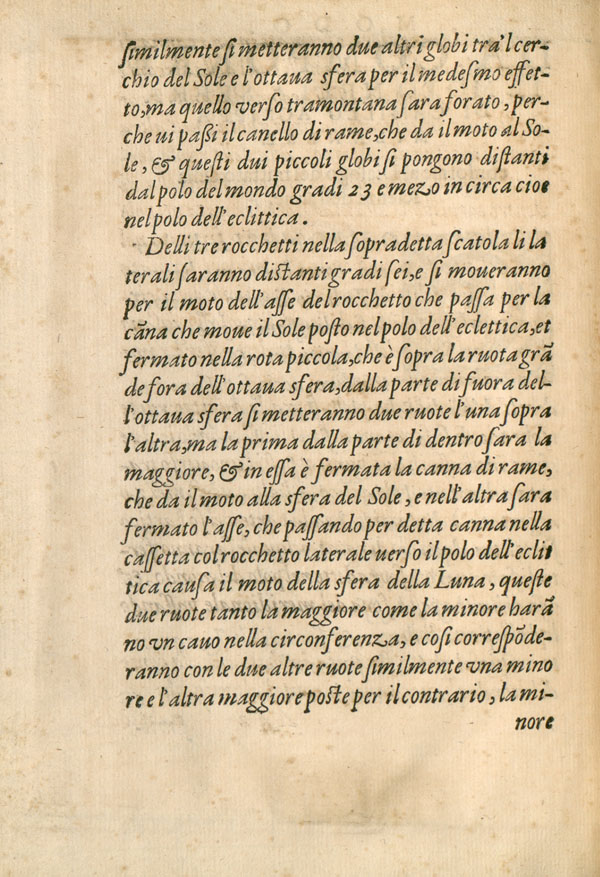 ſimilmente ſi metteranno due altri globi tra'l cer-
chio del Sole e l'ottaua sfera per il medeſmo effet-
to, ma quello verſo tramontana ſara forato, per-
che ui paßi il canello di rame, che da il moto al So-
le, & queſti dui piccoli globi ſi pongono diſtanti
dal polo del mondo gradi 23 e mezo in circa cioe
nel polo dell'eclittica.
Delli tre rocchetti nella ſopradetta ſcatola li la
terali ſaranno diſtanti gradi ſei, e ſi moueranno
per il moto dell'aſſe del rocchetto che paſſa per la
cãna che moue il Sole poſto nel polo dell'eclettica, et
fermato nella rota piccola, che è ſopra la ruota grã
de fora dell'ottaua sfera, dalla parte di fuora del-
l'ottaua sfera ſi metteranno due ruote l'una ſopra
l'altra, ma la prima dalla parte di dentro ſara la
maggiore, & in eſſa è fermata la canna di rame,
che da il moto alla sfera del Sole, e nell'altra ſara
fermato l'aſſe, che paſſando per detta canna nella
caſſetta col rocchetto laterale uerſo il polo dell'eclit
tica cauſa il moto della sfera della Luna, queſte
due ruote tanto la maggiore come la minore harã
no vn cauo nella circonferenza, e coſi correſpõde-
ranno con le due altre ruote ſimilmente vna mino
re e l'altra maggiore poſte per il contrario, la mi-
nore